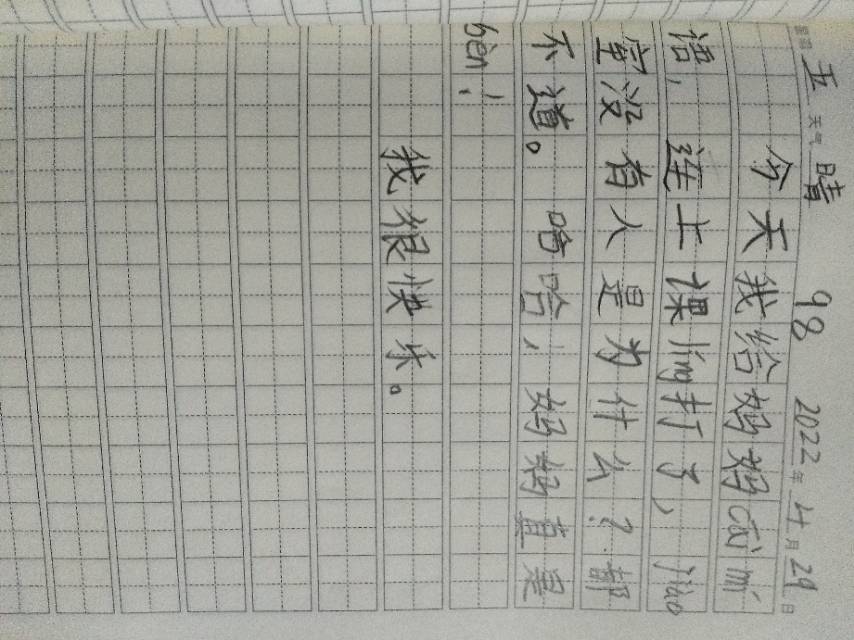 星期 五 天气 晴 98 2022年4月29日
今天我给妈妈cāi mí
语,连上课líng打了,jiào
室没有人是为什么?都
不道。哈哈!妈妈真是
bèn!
我很快乐。